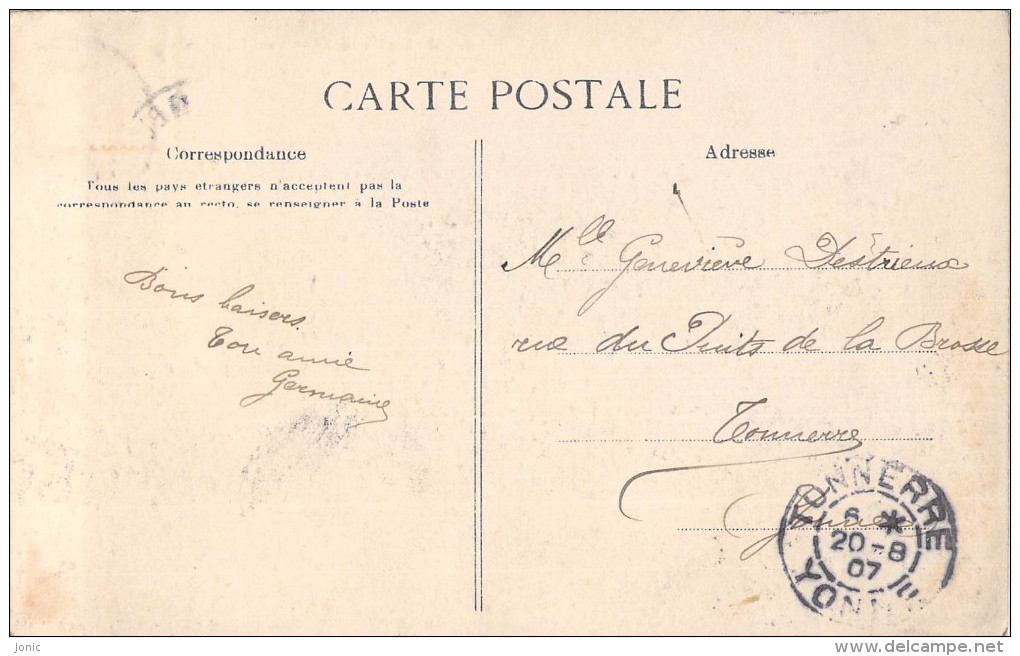 CARTE POSTALE
Correspondance
Tous les pays etrangers n'acceptent pas la
correspondance au recto, se renseigner à la Poste
Bons baisers.
Ton amie
Germaine
Adresse
Mlle Geneviève Destrieux
rue du Puits de la Brosse
Tonnerre
Yonne
TONNERRE
6 *
20-8
07
YONNE
Jonic
delcampe.net